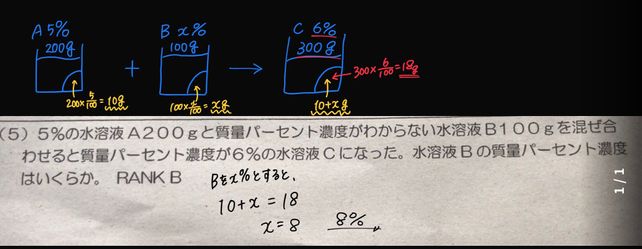 A 5%
200g
+
B x%
100g
→
C 6%
300g
200×5/100=10g
100×x/100=xg
10+xg
300×6/100=18g
(5) 5%の水溶液A200gと質量パーセント濃度がわからない水溶液B100gを混ぜ合
わせると質量パーセント濃度が6%の水溶液Cになった。水溶液Bの質量パーセント濃度
はいくらか。 RANK B
Bをx%とすると、
10+x=18
x=8 8%
1/1